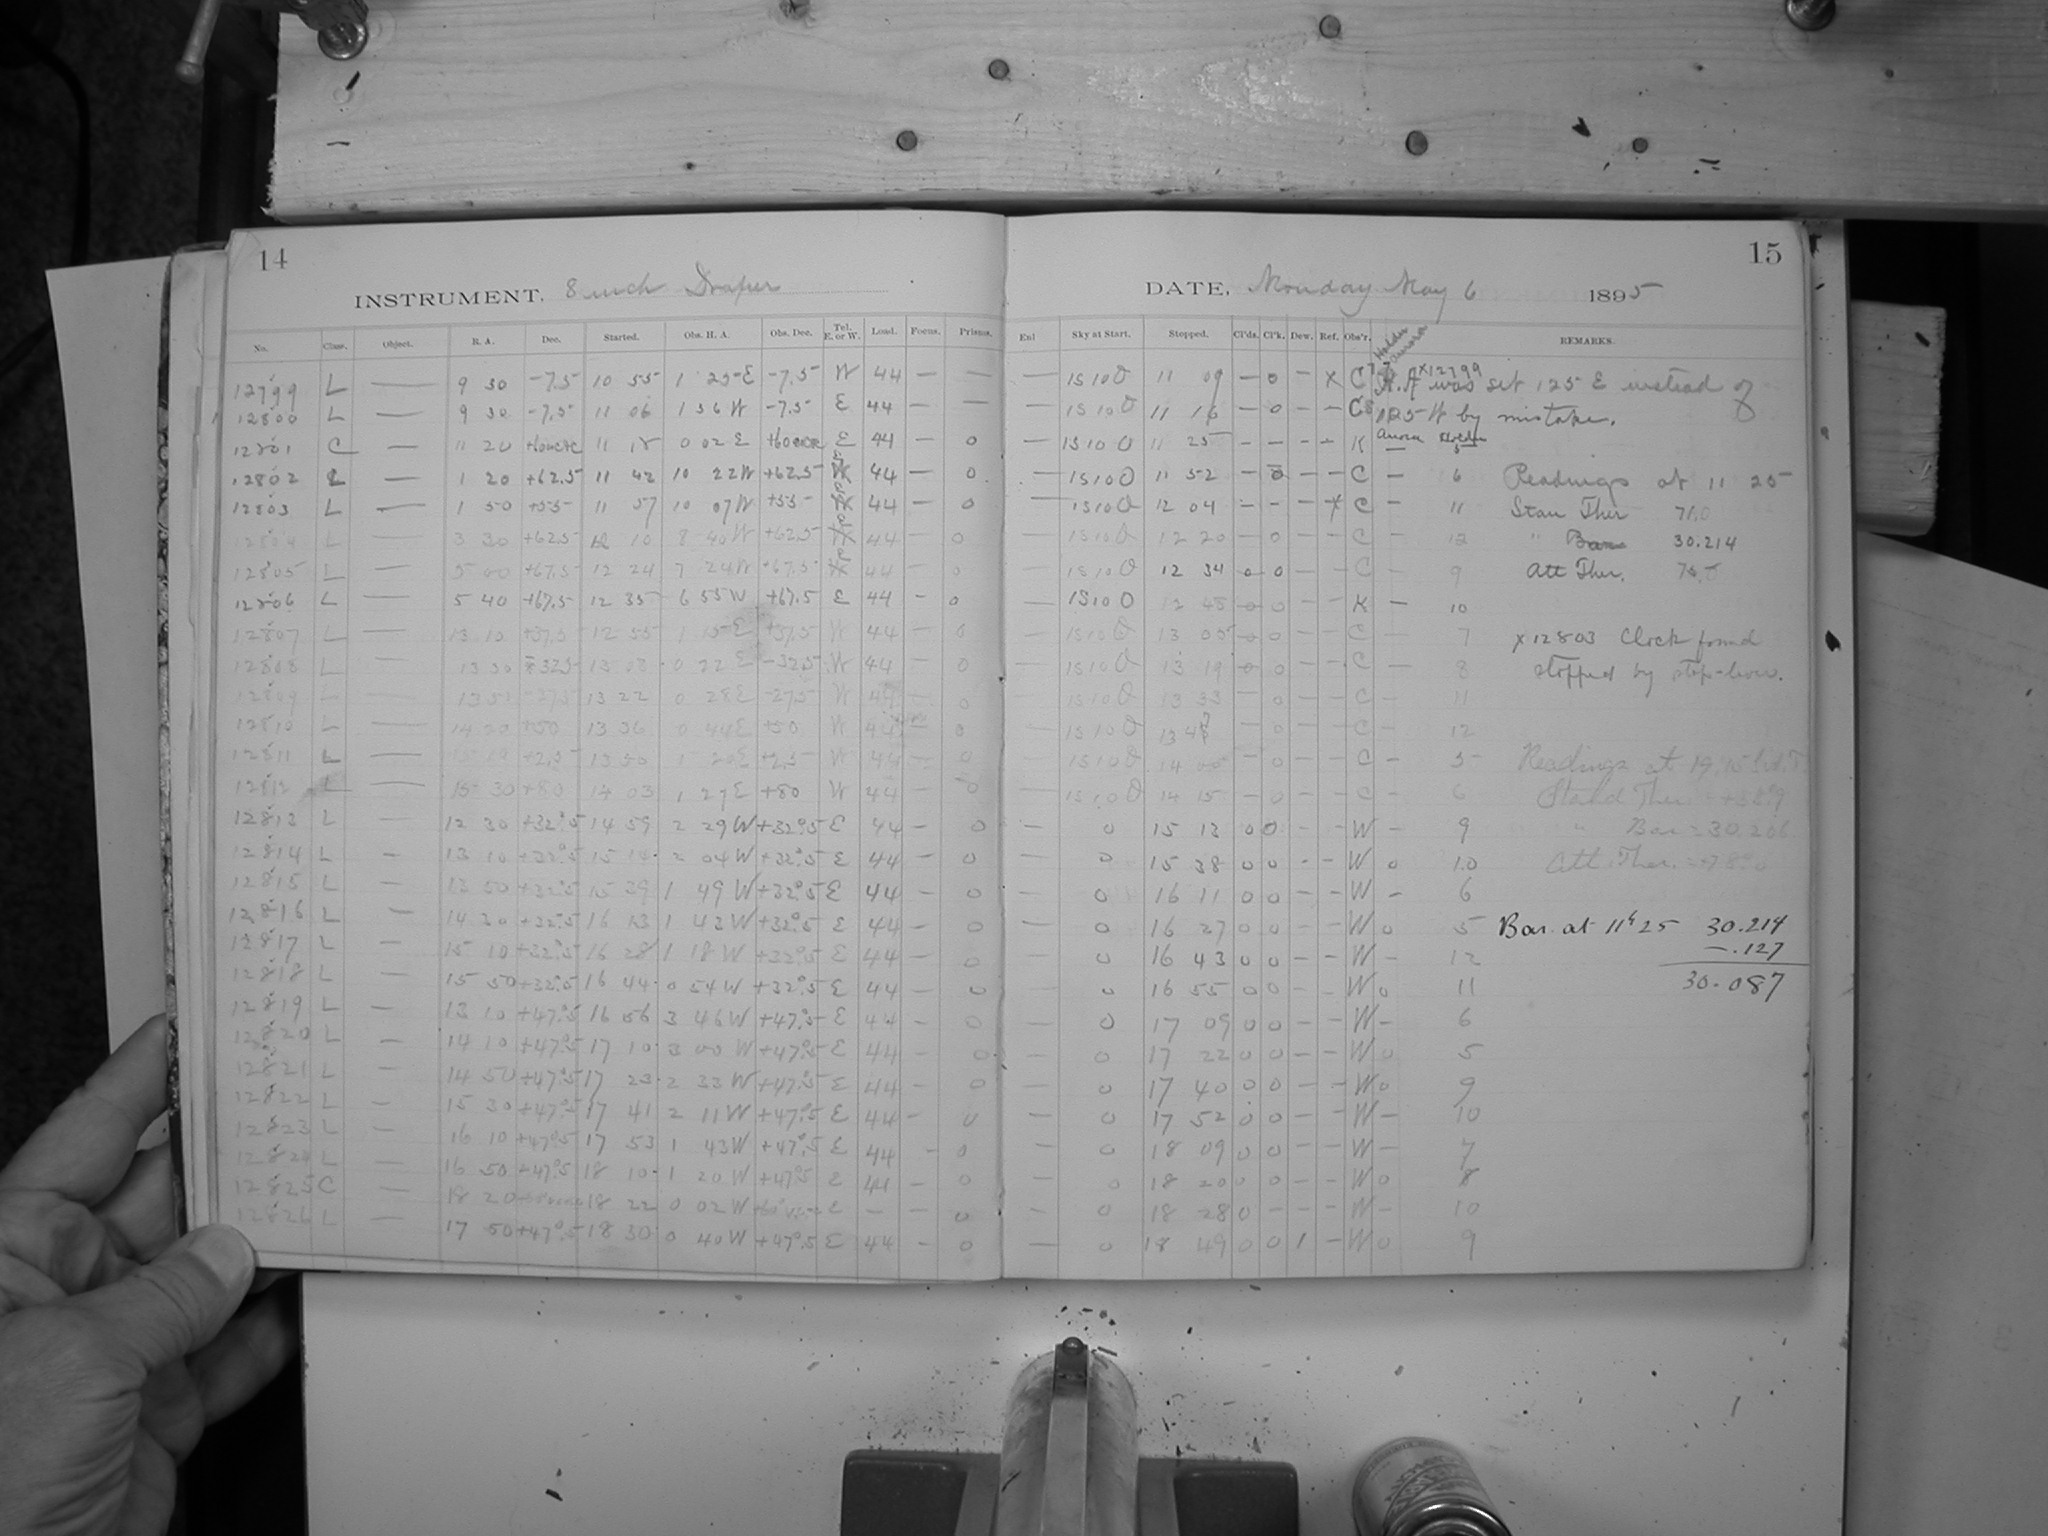 14
INSTRUMENT, 8 inch Draper
No. Class. Object. R. A. Dec. Started. Obs. H. A. Obs. Dec. Tel. E. or W. Load. Focus. Prisms.
12799 L — 9 30 -7.5 10 55 1 25 E -7.5 W 44 — —
12800 L — 9 30 -7.5 11 06 1 36 W -7.5 E 44 — —
12801 C — 11 20 11 18 0 02 E E 44 — 0
12802 L — 1 20 +62.5 11 42 10 22 W +62.5 44 — 0
12803 L — 1 50 +55 11 57 10 07 W +55 44 — 0
12804 L — 3 30 +62.5 12 10 8 40 W +62.5 44 — 0
12805 L — 5 00 +67.5 12 24 7 24 W +67.5 44 — 0
12806 L — 5 40 +67.5 12 35 6 55 W +67.5 E 44 — 0
12807 L — 13 10 +37.5 12 55 1 15 E +37.5 W 44 — 0
12808 L — 13 30 -32.5 13 08 0 22 E -32.5 W 44 — 0
12809 L — 13 50 -27.5 13 22 0 28 E -27.5 W 44 — 0
12810 L — 14 20 +50 13 36 0 44 E +50 W 44 — 0
12811 L — +2.5 13 50 1 20 E +2.5 W 44 — 0
12812 L — 15 30 +80 14 03 1 27 E +80 W 44 — 0
12813 L — 12 30 +32°.5 14 59 2 29 W +32°.5 E 44 — 0
12814 L — 13 10 +32°.5 15 14 2 04 W +32°.5 E 44 — 0
12815 L — 13 50 +32°.5 15 39 1 49 W +32°.5 E 44 — 0
12816 L — 14 30 +32°.5 16 13 1 43 W +32°.5 E 44 — 0
12817 L — 15 10 +32°.5 16 28 1 18 W +32°.5 E 44 — 0
12818 L — 15 50 +32°.5 16 44 0 54 W +32°.5 E 44 — 0
12819 L — 13 10 +47°.5 16 56 3 46 W +47°.5 E 44 — 0
12820 L — 14 10 +47°.5 17 10 3 00 W +47°.5 E 44 — 0
12821 L — 14 50 +47°.5 17 23 2 33 W +47°.5 E 44 — 0
12822 L — 15 30 +47°.5 17 41 2 11 W +47°.5 E 44 — 0
12823 L — 16 10 +47°.5 17 53 1 43 W +47°.5 E 44 — 0
12824 L — 16 50 +47°.5 18 10 1 20 W +47°.5 E 44 — 0
12825 C — 18 20 18 22 0 02 W E — — 0
12826 L — 17 50 +47°.5 18 30 0 40 W +47°.5 E 44 — 0
15
DATE, Monday May 6 1895
Enl Sky at Start. Stopped. Cl'ds. Cl'k. Dew. Ref. Obs'r. Holder Aurora REMARKS.
— 1S10O 11 09 — 0 — x C 7 x12799
H.A. was set 1 25 E instead of
— 1S10O 11 16 — 0 — — C 8 1 25 W by mistake.
Aurora Holder
— 1S10O 11 25 — — — — K — 5
— 1S10O 11 52 — 0 — — C — 6 Readings at 11 25
— 1S10O 12 04 — — — x C — 11 Stan Ther 71.0
— 1S10O 12 20 — 0 — — C — 12 " Bar 30.214
— 1S10O 12 34 0 0 — — C — 9 Att Ther.
— 1S10O 12 45 0 0 — — K — 10
— 1S10O 13 05 0 0 — — C — 7 x12803 Clock found
— 1S10O 13 19 0 0 — — C — 8 stopped by
— 1S10O 13 33 — 0 — — C — 11
— 1S10O 13 — 0 — — C — 12
— 1S10O 14 00 — 0 — — C — 5 Readings at 19.15 Sid. T.
— 1S10O 14 15 — 0 — — C — 6 Stand Ther.
— 0 15 13 0 0 — — W — 9 " Bar = 30.206
— 0 15 38 0 0 — — W 0 10 Att. Ther.
— 0 16 11 0 0 — — W — 6
— 0 16 27 0 0 — — W 0 5 Bar. at 11h 25 30.214
— 0 16 43 0 0 — — W — 12 -.127
— 0 16 55 0 0 — — W 0 11 30.087
— 0 17 09 0 0 — — W — 6
— 0 17 22 0 0 — — W 0 5
— 0 17 40 0 0 — — W 0 9
— 0 17 52 0 0 — — W — 10
— 0 18 09 0 0 — — W — 7
— 0 18 20 0 0 — — W 0 8
— 0 18 28 0 — — — W — 10
— 0 18 49 0 0 1 — W 0 9